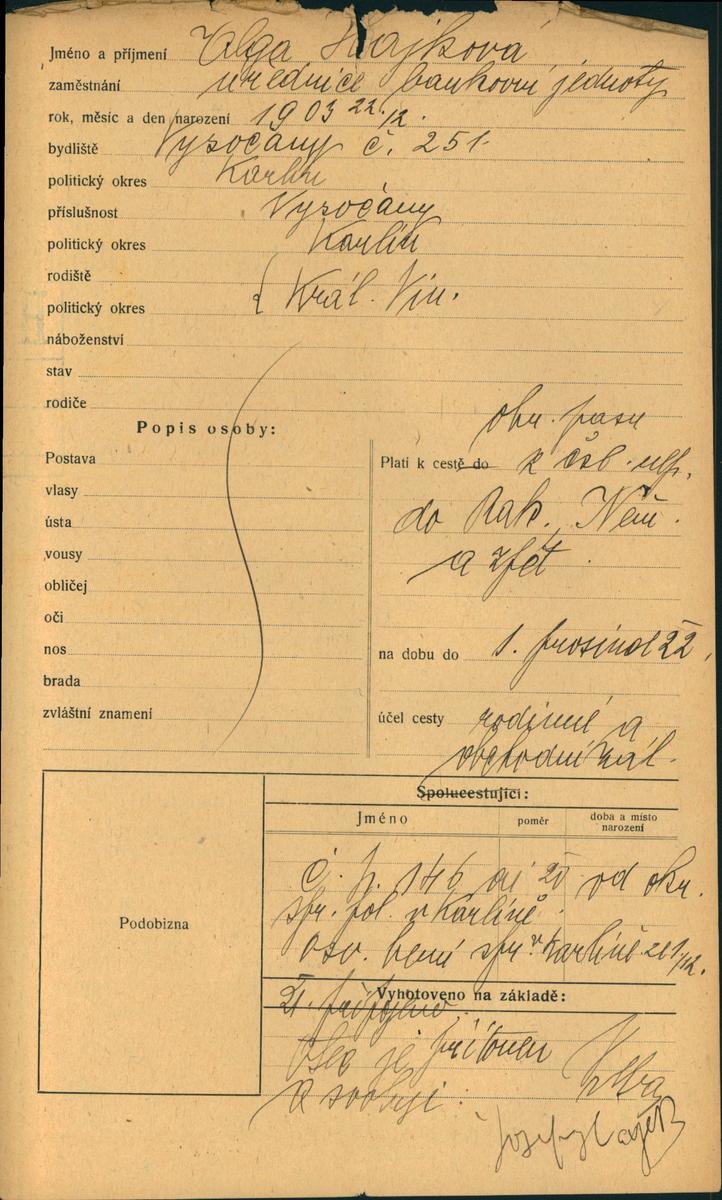 Jméno a příjmení Olga Hajková
zaměstnání úřednice bankovní jednoty
rok, měsíc a den narození 1903 22./12.
bydliště Vysočany č. 251.
politický okres Karlín
příslušnost Vysočany
politický okres Karlín
rodiště
politický okres { Král. Vin.
náboženství
stav
rodiče
Popis osoby:
Postava
vlasy
ústa
vousy
obličej
oči
nos
brada
zvláštní znamení
obn. pasu
Platí k cestě do z čsl. rep.
do Rak., Něm.
a zpět.
na dobu do 1. prosince 22.
účel cesty rodinné a
obchodní zál.
Spolucestující:
Jméno poměr doba a místo narození
Č. p. 146 ai 20 od okr.
spr. pol. v Karlíně.
Osv. berní spr. v Karlíně 20 1./12.
Podobizna
Vyhotoveno na základě:
Otec je přítomen
a svoluje:
Josef Hájek